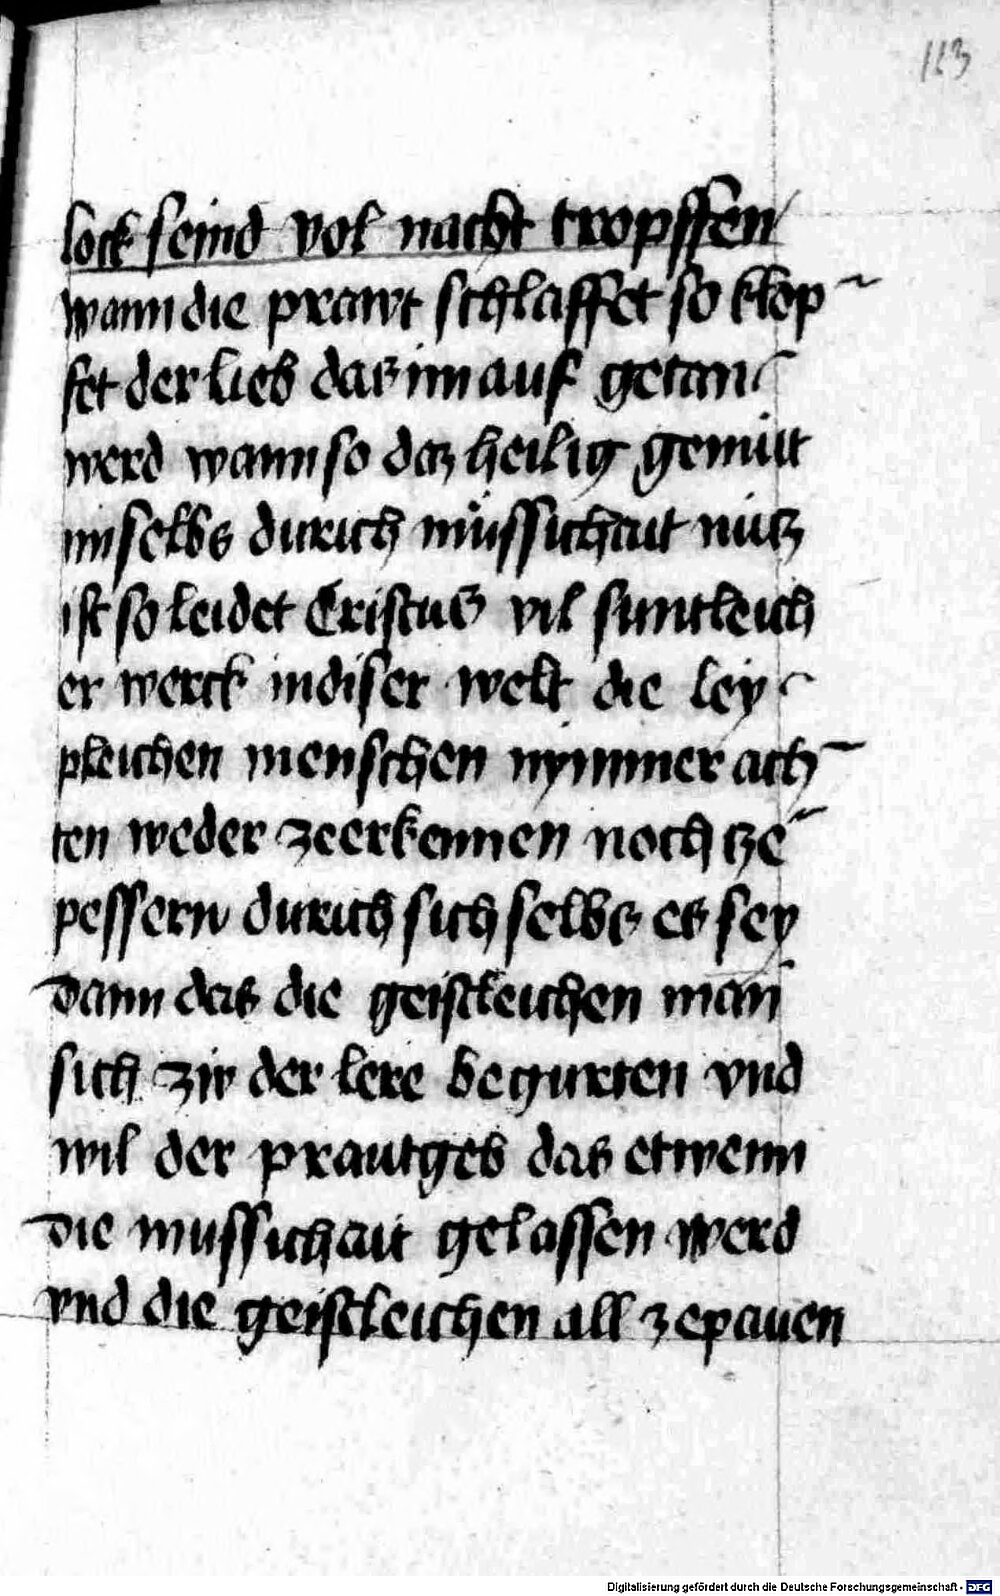 113
lock seind vol nacht tropffen
wann die prawt schlaffet so klop
fet der lieb das im auf getan
werd wann so daz heilig gemütt
im selbs durich müssichait nütz
ist so leidet Cristus vil suntleich
er werck in diser welt die ley
pleichen menschen nymmer ach
ten weder ze erkennen noch tze
pessern durich sich selbs es sey
dann das die geistleichen man
sich zw der lere begurten vnd
wil der prautgeb das etwenn
die mussichait gelassen werd
vnd die geistleichen all ze pauen
Digitalisierung gefördert durch die Deutsche Forschungsgemeinschaft - DFG